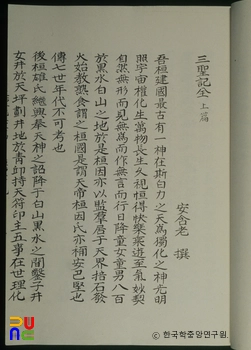 三聖記全 上篇
安含老 撰
吾桓建國最古有一神在斯白力之天爲獨化之神光明
照宇宙權化生萬物長生久視恒得快樂乘遊至氣妙契
自然無形而見無爲而作無言而行日降童女童男八百
於黑水白山之地於是桓因亦以監群居于天界掊石發
火始教熟食謂之桓國是謂天帝桓因氏亦稱安巴堅也
傳七世年代不可考也
後桓雄氏繼興奉天神之詔降于白山黑水之間鑿子井
女井於天坪劃井地於青邱持天符印主五事在世理化
한국학중앙연구원